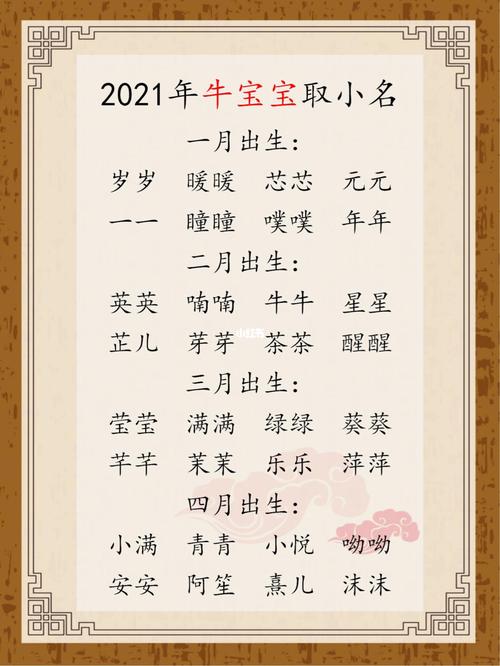 2021年牛宝宝取小名
一月出生：
岁岁 暖暖 芯芯 元元
一一 瞳瞳 噗噗 年年
二月出生：
英英 喃喃 牛牛 星星
小红书
芷儿 芽芽 茶茶 醒醒
三月出生：
莹莹 满满 绿绿 葵葵
芊芊 茉茉 乐乐 萍萍
四月出生：
小满 青青 小悦 呦呦
安安 阿笙 熹儿 沫沫